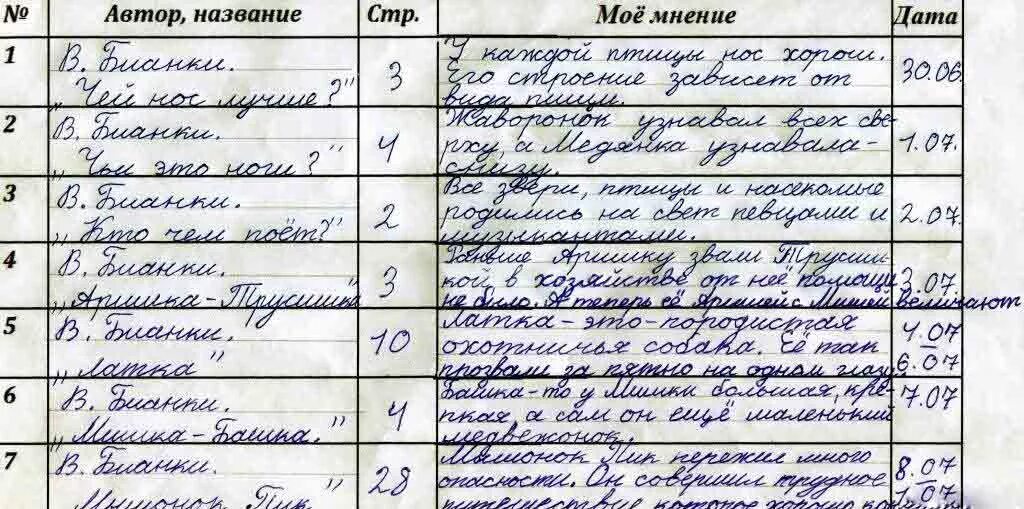 № Автор, название Стр. Моё мнение Дата
1 В. Бианки. У каждой птицы нос хорош.
„Чей нос лучше?" 3 Его строение зависет от 30.06.
вида пищи.
2 В. Бианки. Жаворонок узнавал всех све-
„Чьи это ноги?" 4 рху а Медянка узнавала- 1.07.
снизу.
3 В. Бианки. Все звери, птицы и насекомые
„Кто чем поёт?" 2 родились на свет певцами и 2.07.
музыкантами.
4 В. Бианки. Раньше Аришку звали Трусиш-
„Аришка-Трусишка" 3 кой в хозяйстве от неё помощи 3.07.
не было. А теперь её Аришей с Мишей величают
5 В. Бианки. Латка-это-породистая 4.07
„Латка" 10 охотничья собака. Её так 6.07
прозвали за пятно на одном глазу.
6 В. Бианки. Башка-то у Мишки большая, кре- 7.07
„Мишка-Башка." 4 пкая, а сам он ещё маленький
медвежонок.
7 В. Бианки. Мышонок Пик пережил много 8.07
„Мышонок Пик" 28 опасности. Он совершил трудное .07
путешествие которое хорошо